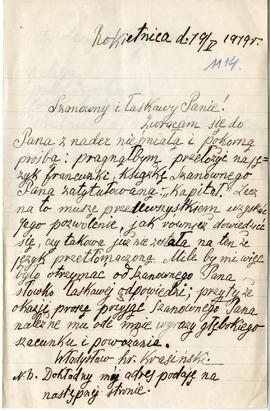 Rokietnica d. 19/V 1919 r.
1114.
Szanowny i Łaskawy Panie!
Zwracam się do
Pana z nader nieśmiałą i pokorną
prośbą: pragnąłbym przełożyć na ję-
zyk francuski, książkę Szanownego
Pana zatytułowaną „Kapitał". Lecz
na to muszę przedewszystkiem uzyskać
Jego pozwolenie, jak również dowiedzieć
się, czy takowa już nie została na ten że
język przetłomaczoną. Miło by mi więc
było otrzymać od Szanownego Pana
słówko łaskawej odpowiedzi; przy tej że
okazji proszę przyjąć Szanownego Pana
należne mu ode mnie wyrazy głębokiego
szacunku i poważania.
Władysław hr. Krasiński.
N.B. Dokładny mój adres podaję na
następnej stronie.